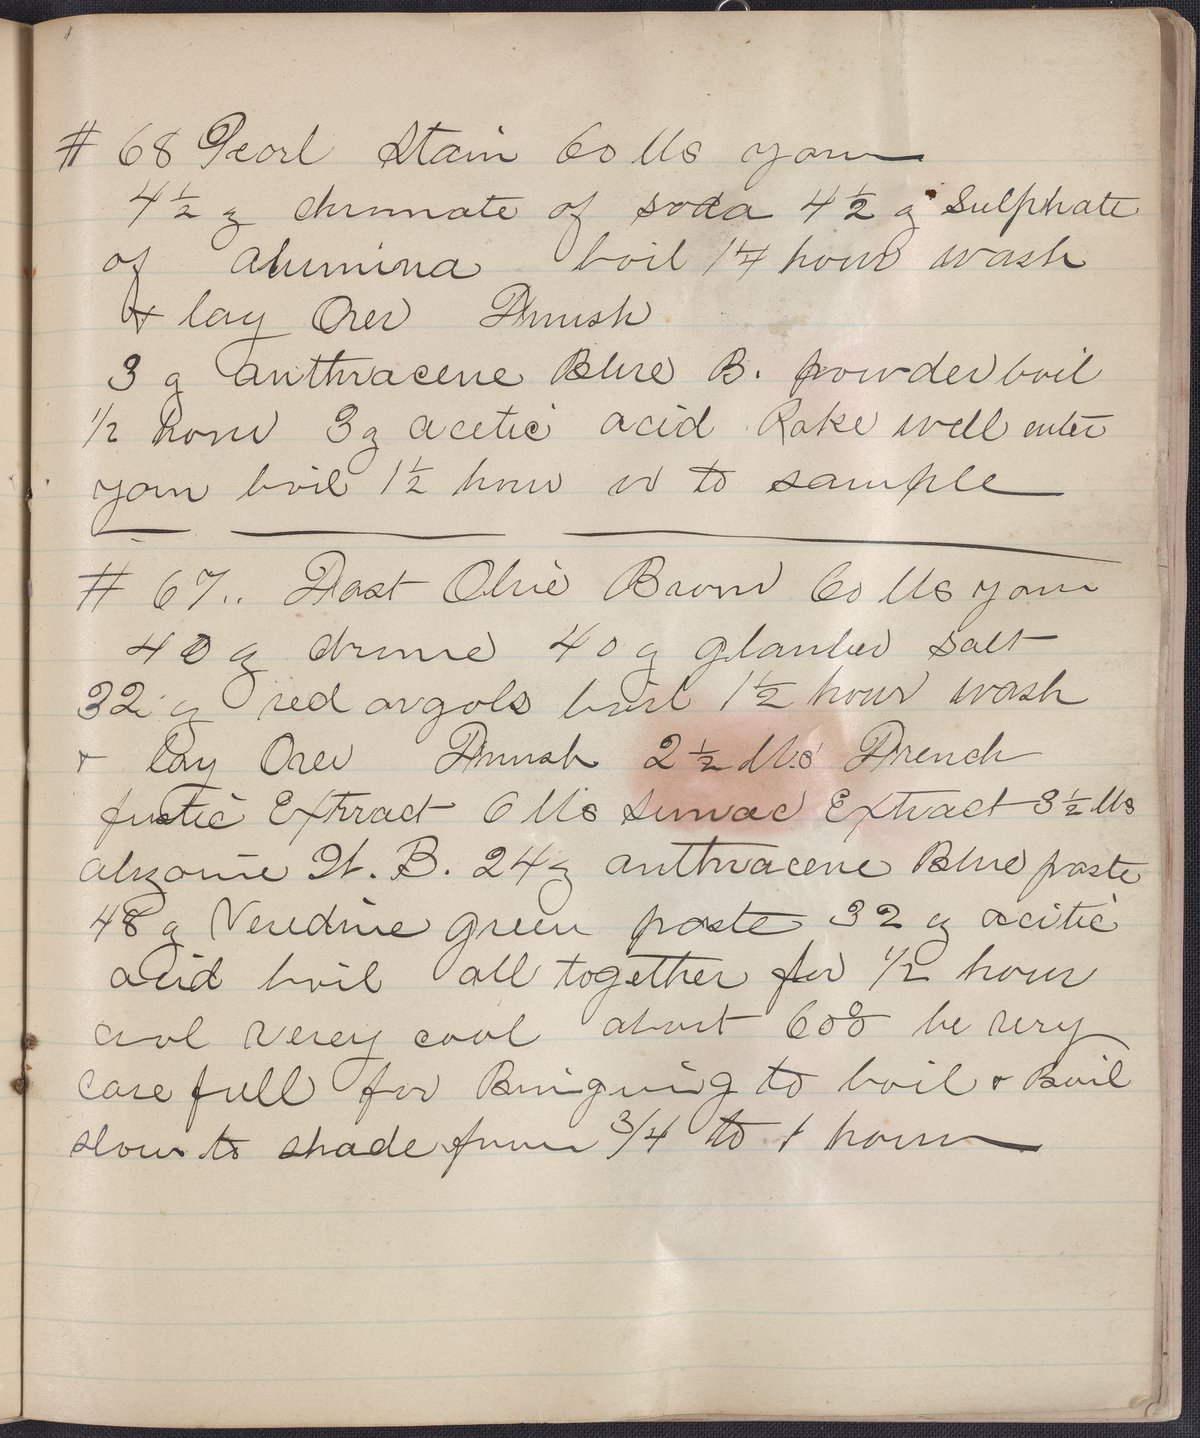 # 68 Pearl Stain 60 lbs yarn
4 1/2 g chromate of soda 4 1/2 g Sulphate
of alumina boil 1 1/4 hour wash
& lay Over Finish
3 g anthracene Blue B. powder boil
1/2 hour 3 g acetic acid Rake well enter
yarn boil 1 1/2 hour or to sample
# 67.. Fast Olive Brown 60 lbs yarn
40 g chrome 40 g glauber salt
32 g red argols boil 1 1/2 hour wash
& lay Over Finish 2 1/2 lbs French
fustic Extract 6 lbs Sumac Extract 3 1/2 lbs
alizarine W. B. 24 g anthracene Blue paste
48 g Veredine green paste 32 g acitic
acid boil all together for 1/2 hour
cool verey cool about 60° be very
care full for Bringuing to boil & Boil
slow to shade from 3/4 to 1 hour